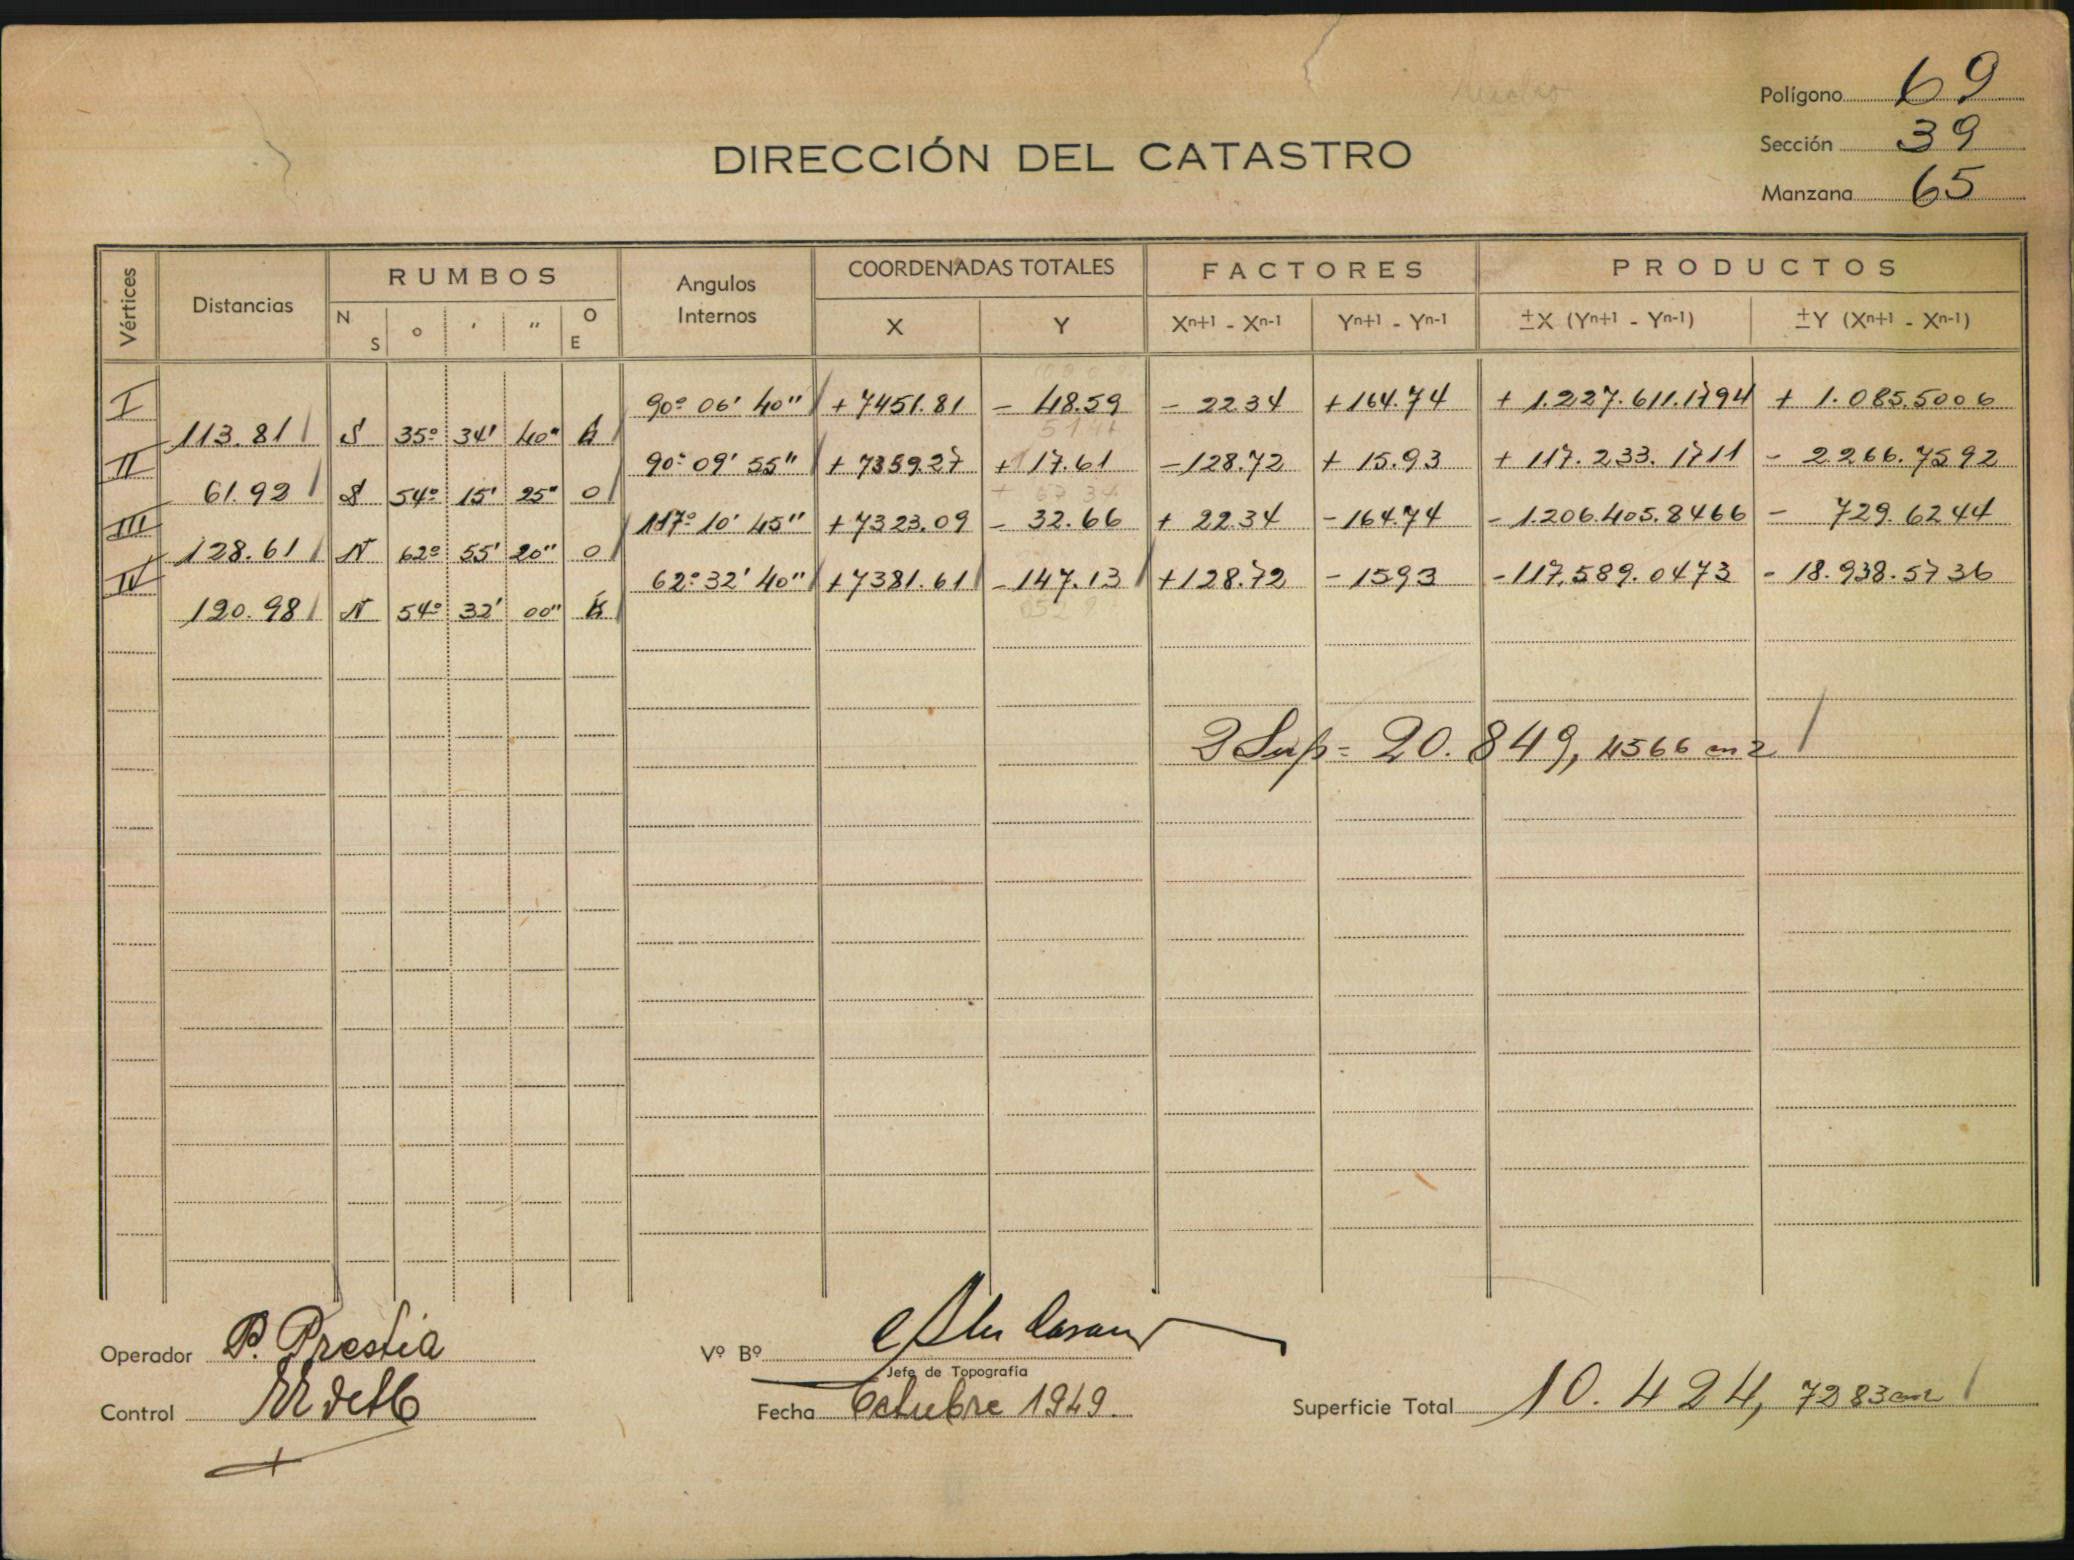 Polígono 69
Sección 39
Manzana 65
DIRECCIÓN DEL CATASTRO
Vértices Distancias RUMBOS Angulos Internos COORDENADAS TOTALES FACTORES PRODUCTOS
N S o ' " O E X Y Xn+1 - Xn-1 Yn+1 - Yn-1 ±X (Yn+1 - Yn-1) ±Y (Xn+1 - Xn-1)
I 90º 06' 40" +7451.81 - 48.59 - 22.34 +164.74 + 1.227.611.1794 + 1.085.5006
113.81 S 35º 34' 40" E
II 90º 09' 55" + 7359.27 + 17.61 -128.72 + 15.93 + 117.233.1711 - 2.266.7592
61.92 S 54º 15' 25" O
III 117º 10' 45" +7323.09 - 32.66 + 22.34 -164.74 - 1.206.405.8466 - 729.6244
128.61 N 62º 55' 20" O
IV 62º 32' 40" +7381.61 - 147.13 +128.72 - 15.93 -117.589.0473 - 18.938.5736
120.98 N 54º 32' 00" E
2 Sup = 20.849, 4566 cm2
Operador P. Prestia
Vº Bº
Jefe de Topografía
Control
Fecha Octubre 1949.
Superficie Total 10.424, 7283 cm2